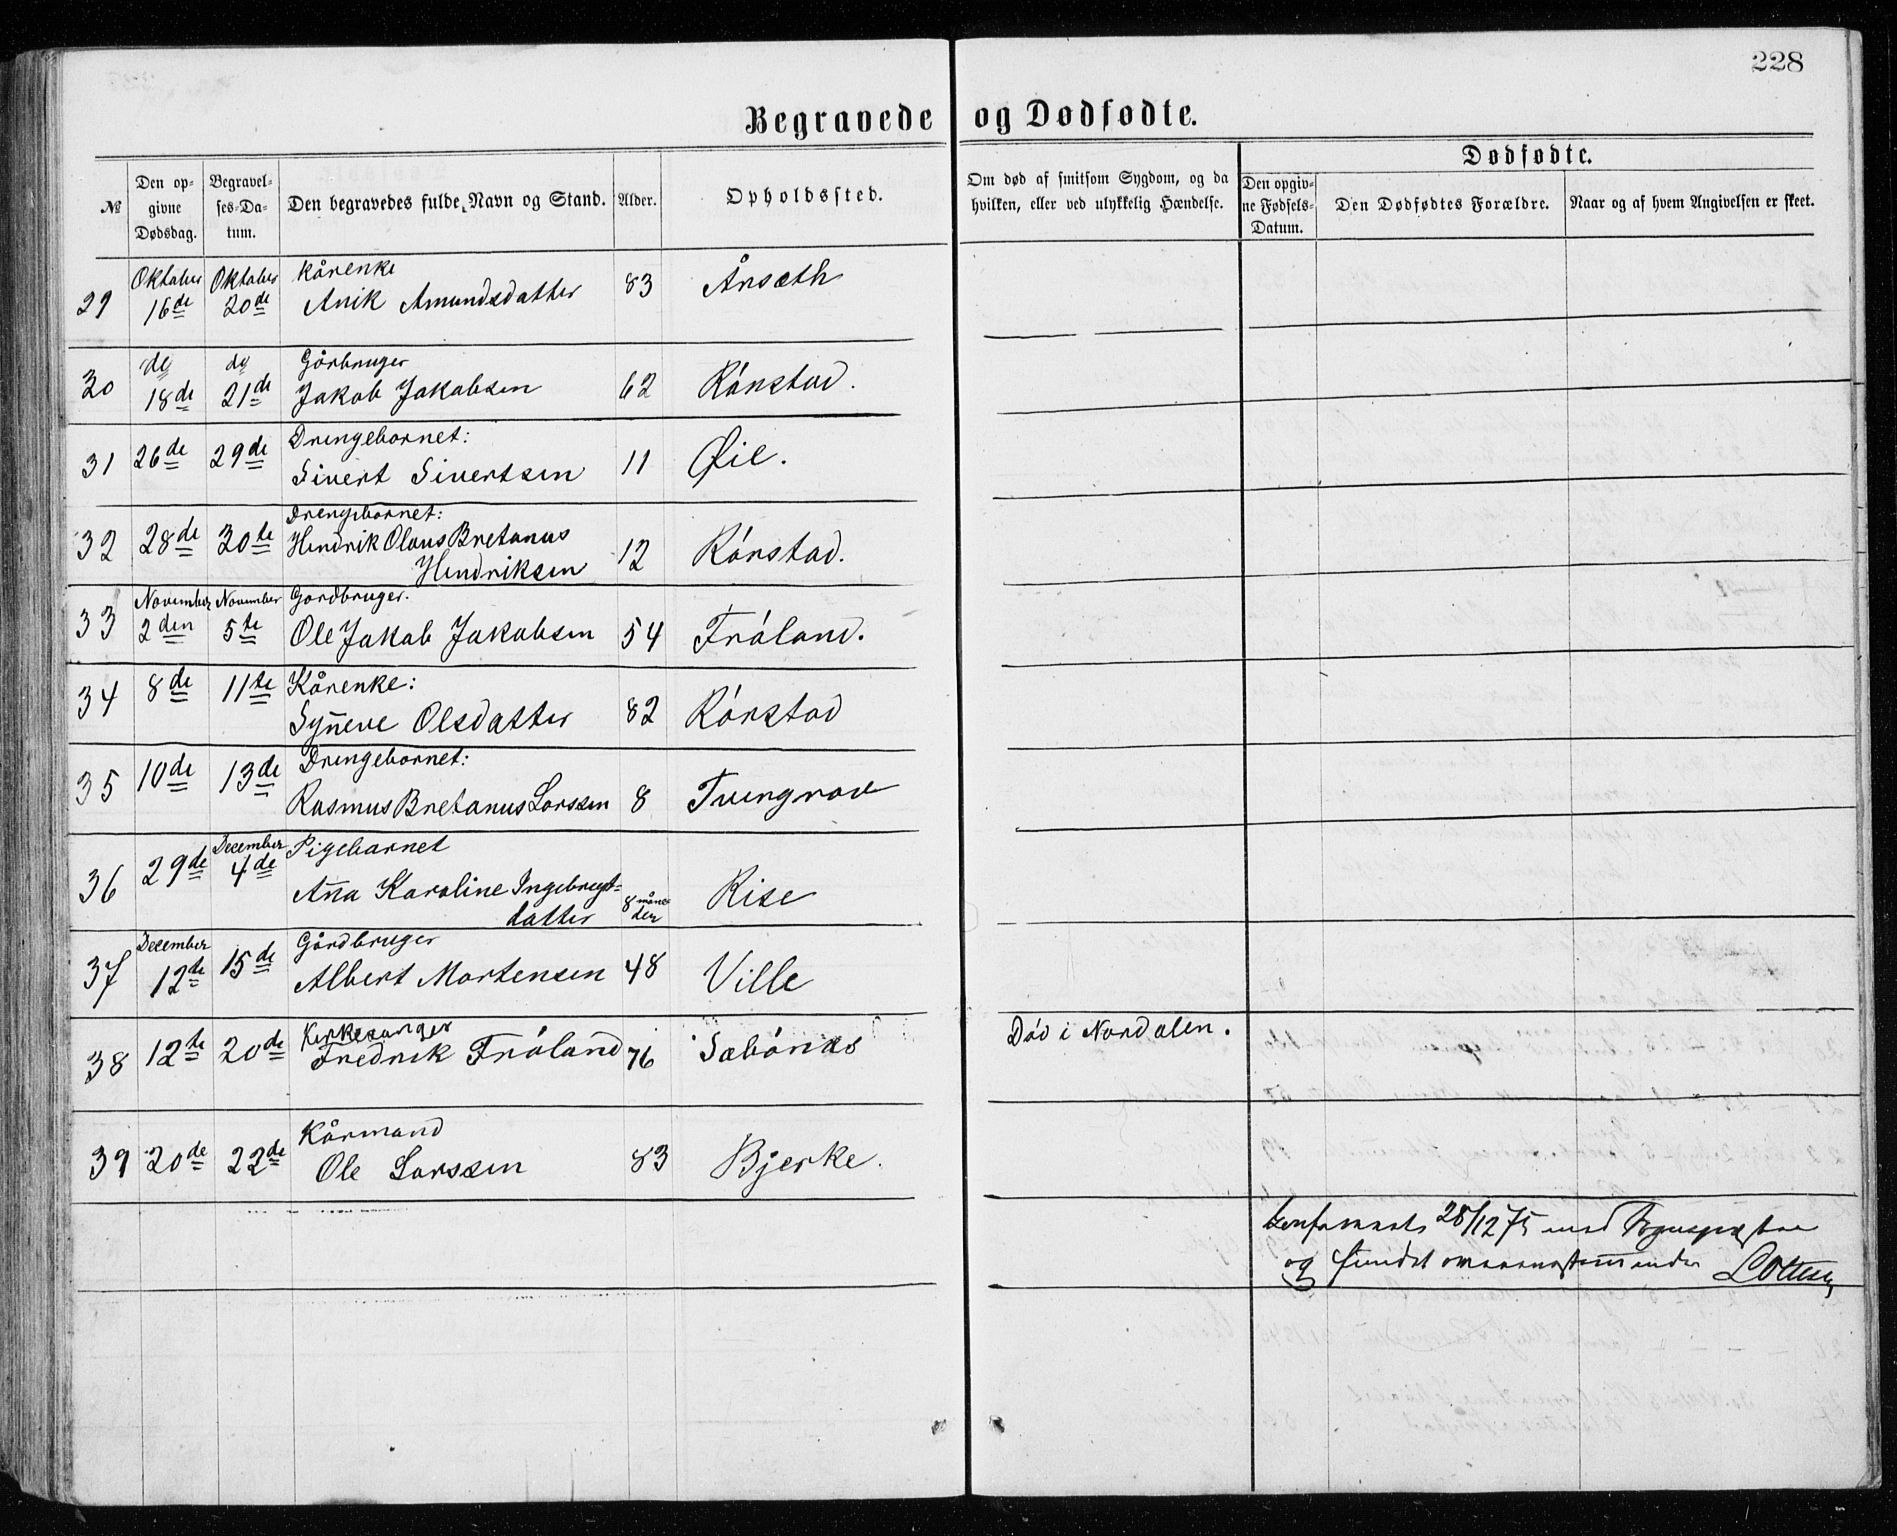 228
Begravede og Dødfødte.
№
Den op-
givne
Dødsdag.
Begravel-
ses-Da-
tum.
Den begravedes fulde Navn og Stand.
Alder.
Opholdssted.
Om død af smitsom Sygdom, og da
hvilken, eller ved ulykkelig Hændelse.
Dødfødte.
Den opgiv-
ne Fødsels-
Datum.
Den Dødfødtes Forældre.
Naar og af hvem Angivelsen er skeet.
Oktober Oktober Kårenke
29 16de 20de Anik Amundsdatter 83 Årsæth
do do Gårbruger
30 18de 21de Jakob Jakobsen 62 Rónstad.
Drengebarnet:
31 26de 29de Sivert Sivertsen 11 Øie.
Drengebarnet:
32 28de 30te Hendrik Olaus Bretanus
Hendriksen 12 Rónstad.
November November Gordbruger.
33 2den 5te Ole Jakob Jakobsen 54 Fróland.
34 8de 11te Kårenke:
Syn̄eve Olsdatter 82 Rónstad
35 10de 13de Drengebarnet:
Rasmus Bretanus Larssen 8 Tvengrov
December Pigebarnet
36 29de 4de An̄a Karoline Ingebregt=
datter 8 måne-
der Rise
December Gårdbruger
37 12te 15de Albert Mortensen 48 Ville
Kirkesanger
38 12te 20de Fredrik Fróland 76 Sæbónæs Dód i Nordalen.
Kårmand
39 20de 22de Ole Larssen 83 Bjerke.
28/12 75 med
og fundet Lottesen